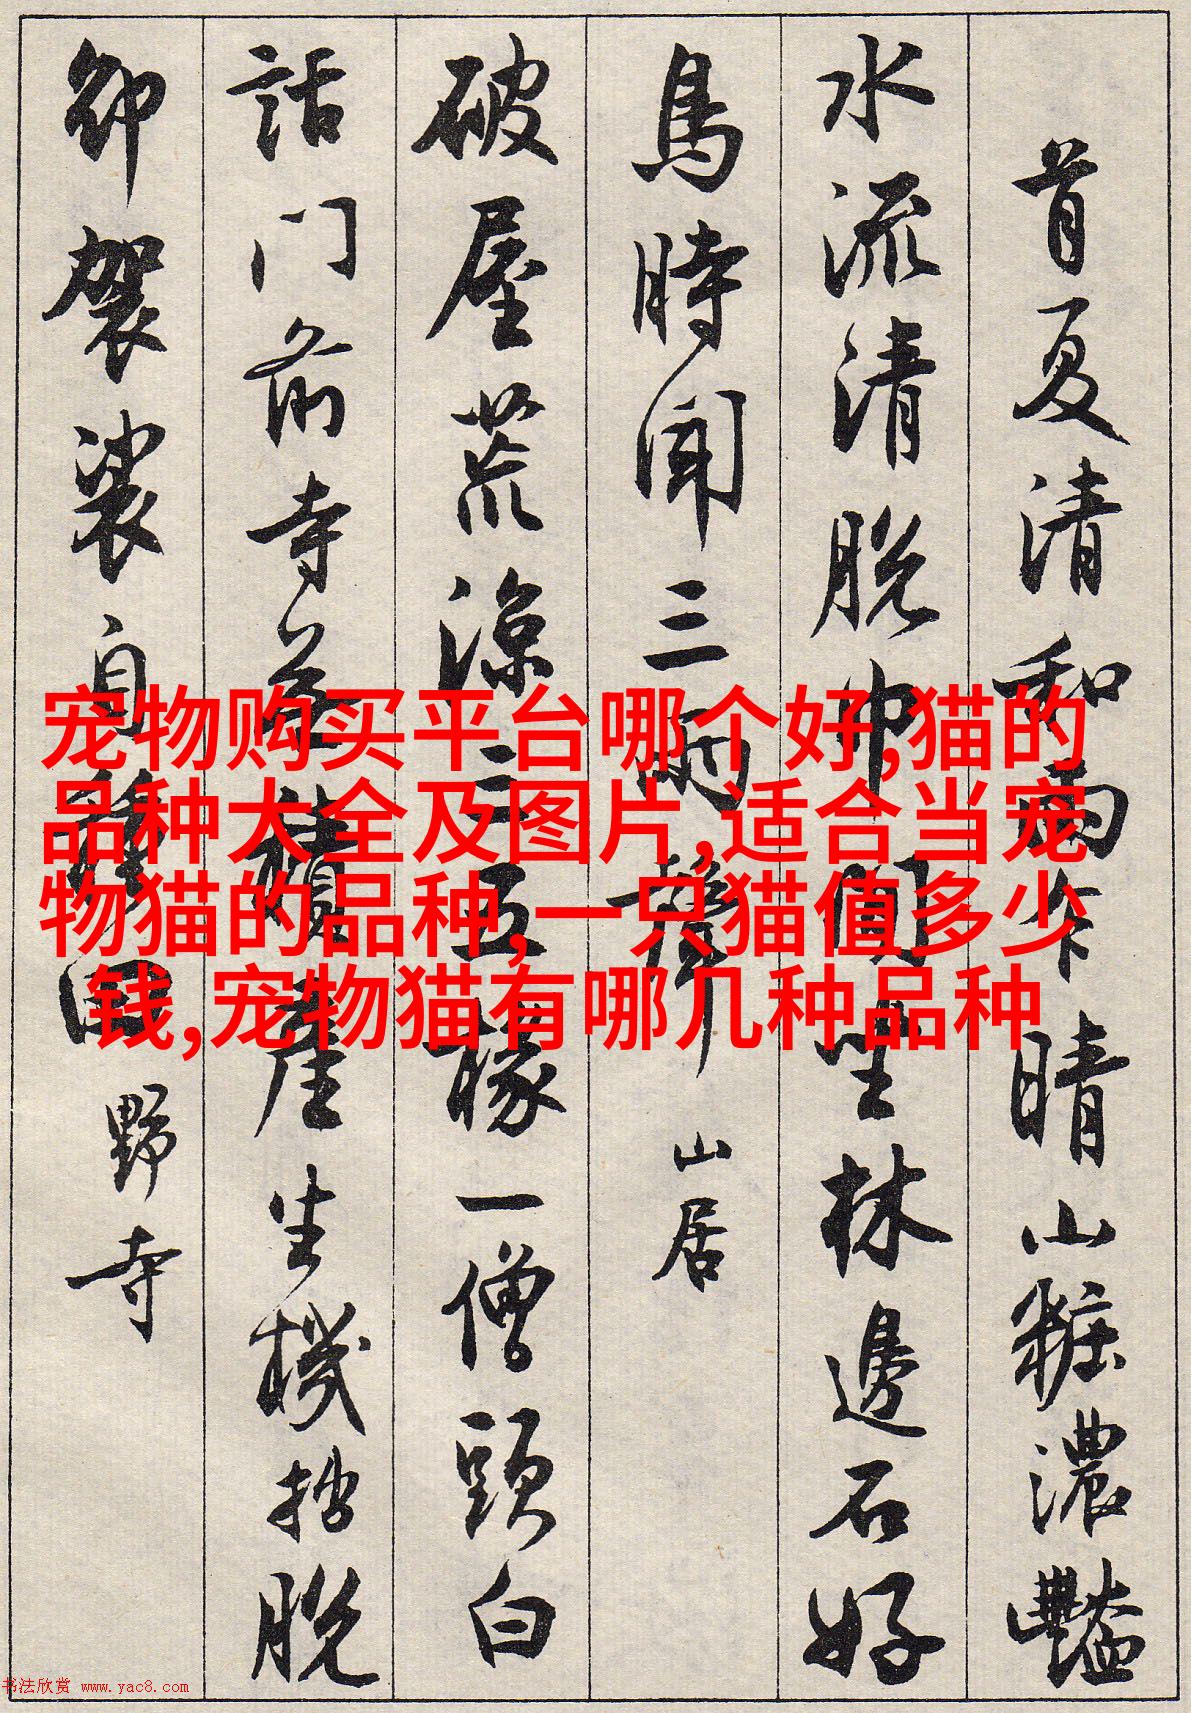 首夏清和雨乍晴山粧濃豔
水流清脫巾坐林邊石好
鳥時聞三兩聲 山居
破屋荒涼三五椽一僧頭白
話門前寺無積產生機拙脫
卻袈裟自種田 野寺
宠物购买平台哪个好,猫的
品种大全及图片,适合当宠
物猫的品种,一只猫值多少
钱,宠物猫有哪几种品种
书法欣赏 www.yac8.com